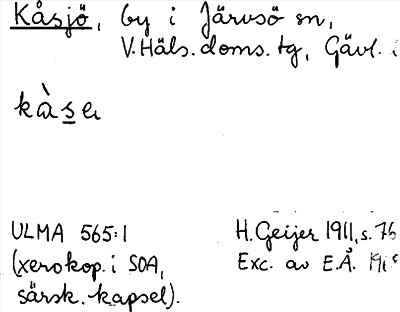 Kåsjö, by i Järvsö sn,
V.Häls. doms. tg, Gävl.
kå̀se
ULMA 565:1 H.Geijer 1911, s. 76
(xerokop. i SOA, Exc. av E.Å.
särsk. kapsel).